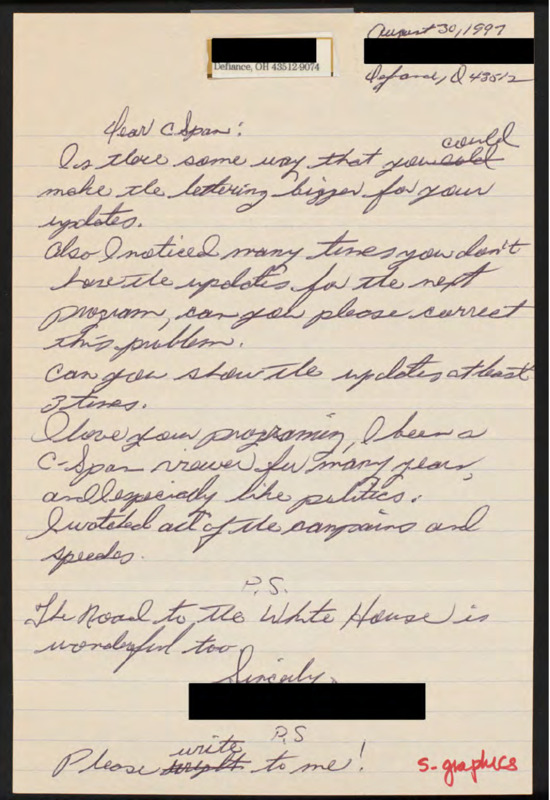 August 30, 1997
Defiance, OH 43512-9074
Defiance, O 43512
Dear C Span:
could
Is there some way that you cold
make the lettering bigger for your
updates.
Also I noticed many times you don't
have the updates for the next
program, can you please correct
this problem.
Can you show the updates at least
3 times.
I love your programing, I been a
C-Span viewer for many years,
and I especially like politics.
I watched all of the campains and
P.S.
The Road to the White House is
wonderful too
Sincerly,
P.S
write
Please wright to me!
S-graphics